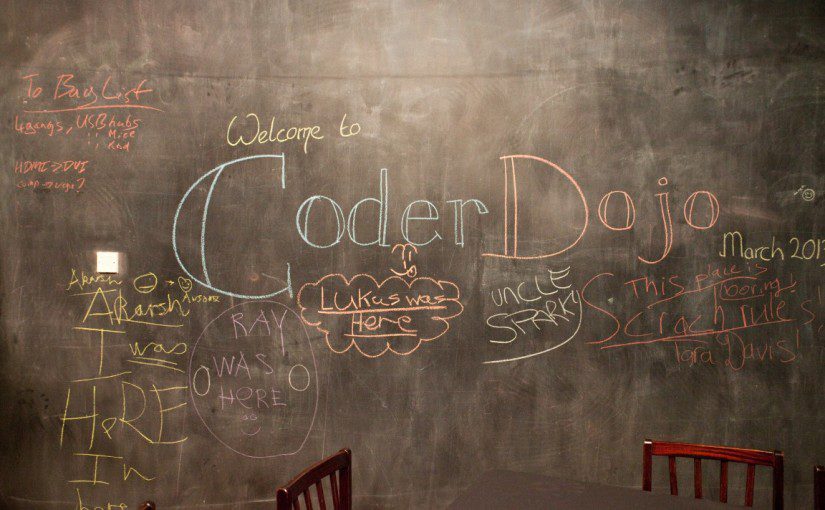 To Buy List
4gangs, USB hubs
" Mice
" Kbd
HDMI → DVI
comp → vga?
Welcome to
CoderDojo
March 201
Akarsh
Akarsh
I was
HeRE
In
here
RAY
WAS
HERE
LUKAS was
Here
UNCLE
SPARKY
This place is
booring
Scrach rules,
Tara Davis!